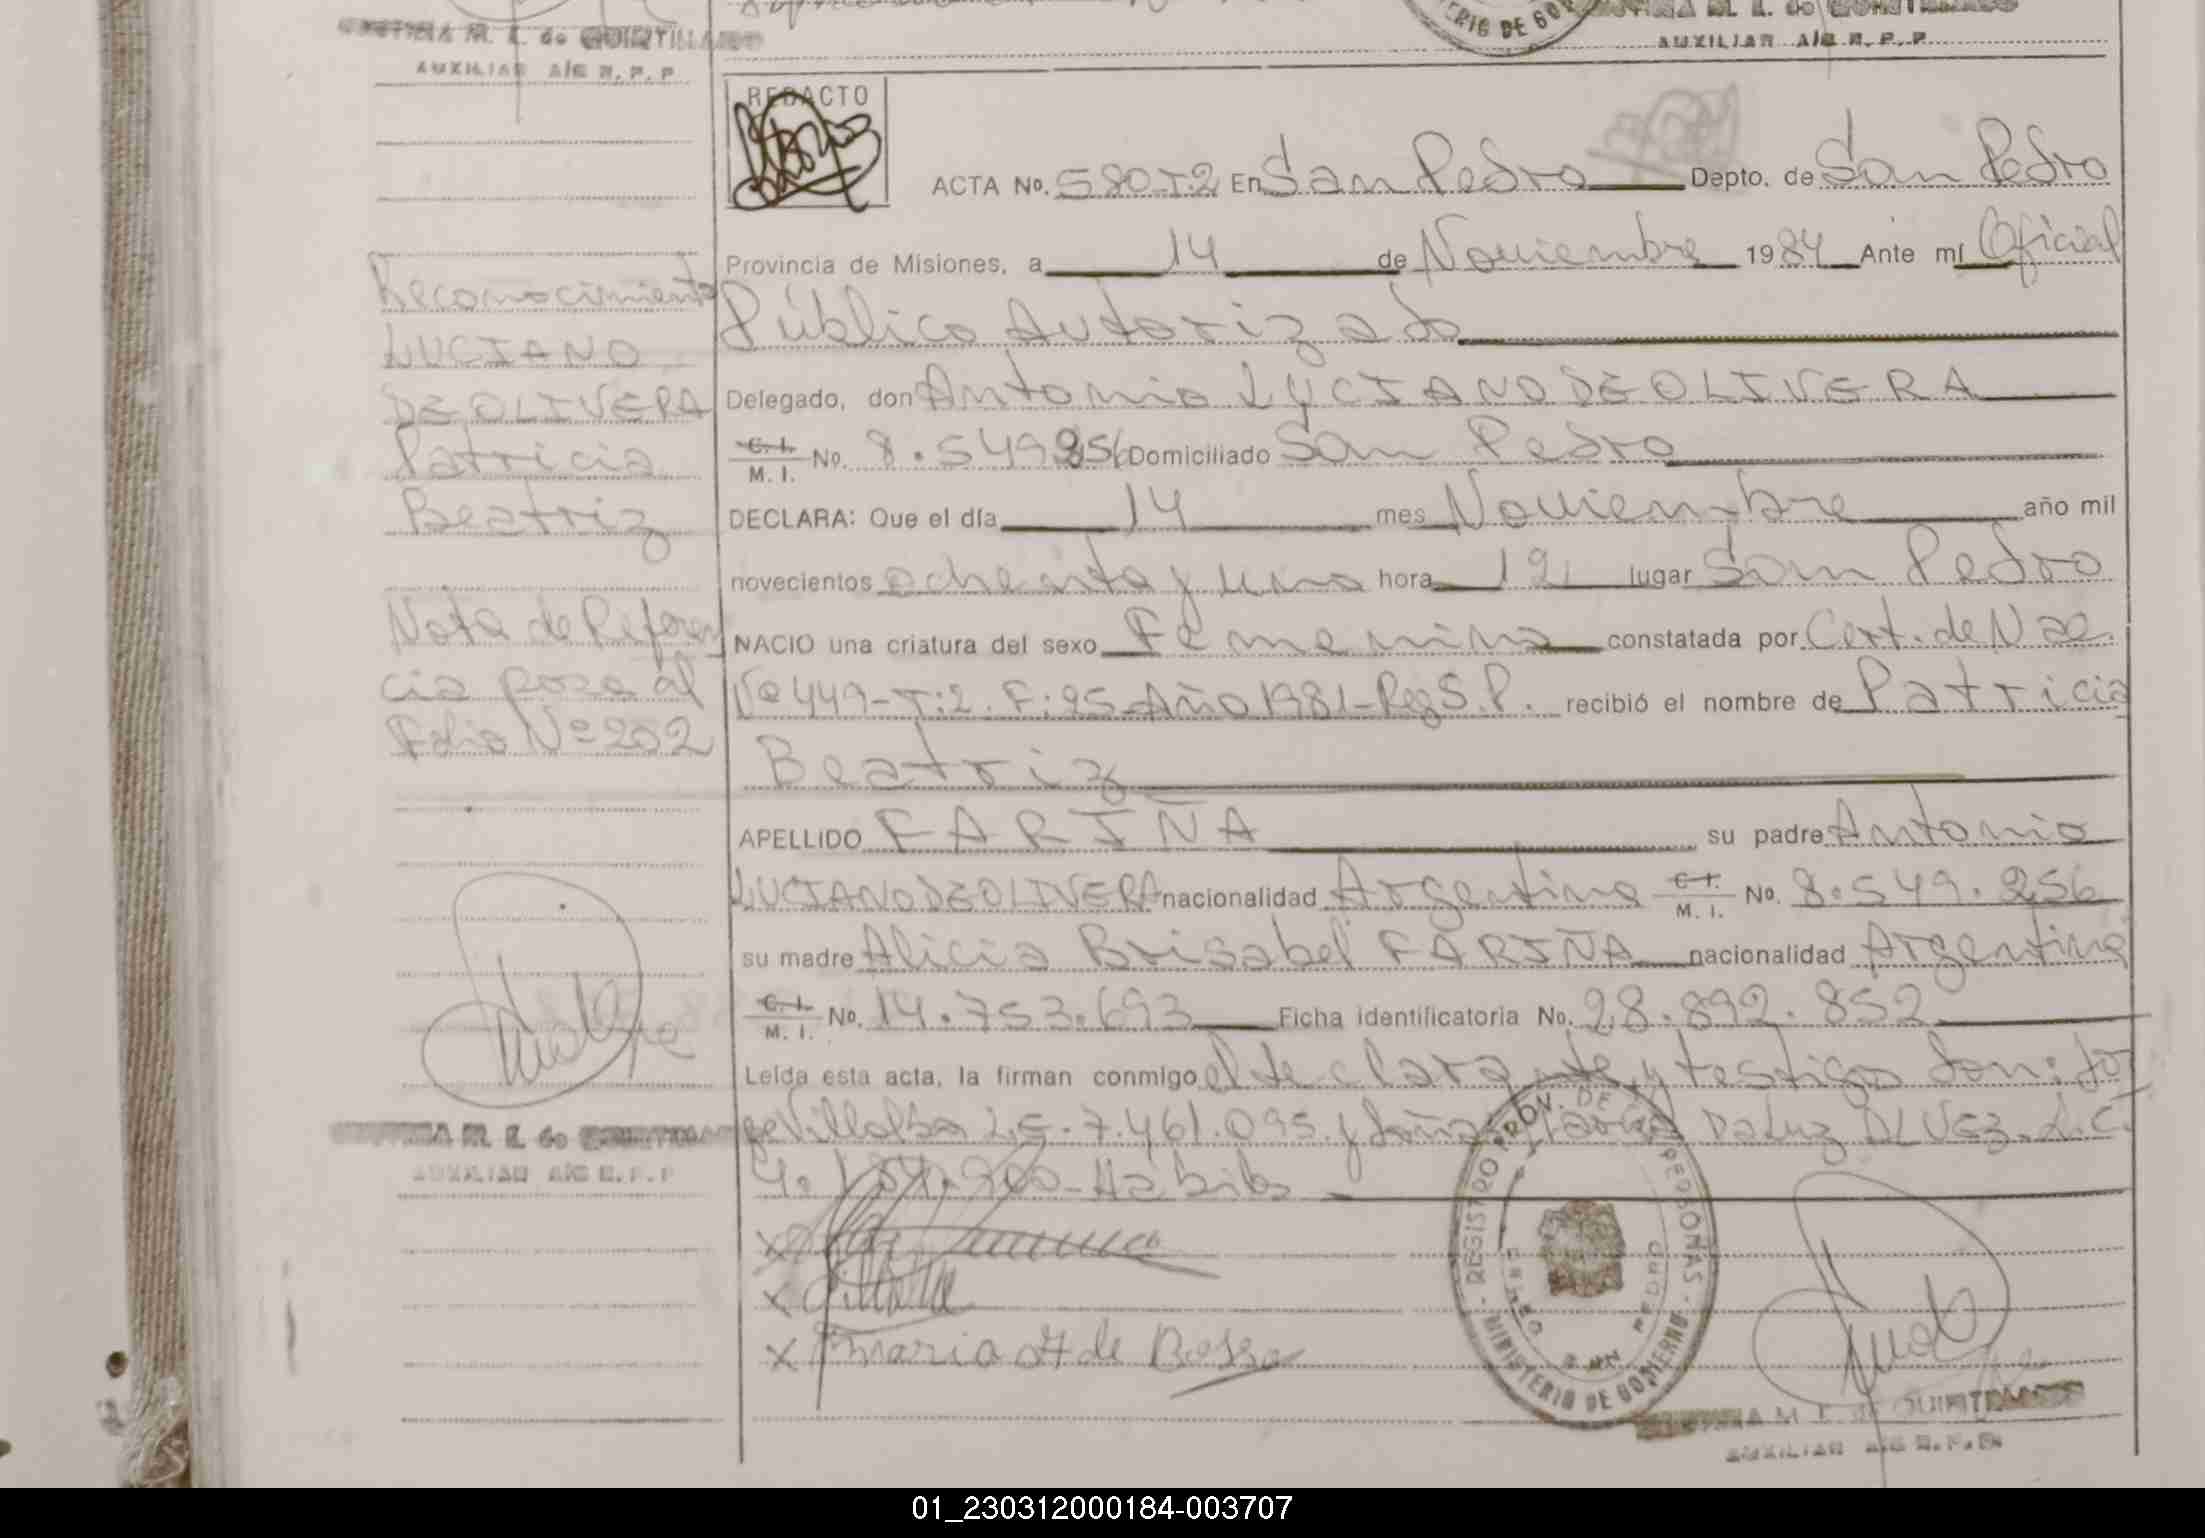 AUXILIAR A/C R.P.P
MINISTERIO DE GOB
M. E. de QUINTILLANO
AUXILIAR A/C R.P.P.
REDACTO
ACTA No. 580-T:2 En San Pedro Depto. de San Pedro
Provincia de Misiones, a 14 de Noviembre 1984 Ante mí Oficial
Público Autorizado
Delegado, don Antonio LUCIANO DE OLIVERA
C.I. M.I. No. 8.549.256 Domiciliado San Pedro
DECLARA: Que el día 14 mes Noviembre año mil
novecientos ochenta y uno hora 12 lugar San Pedro
NACIO una criatura del sexo Femenino constatada por Cert. de Nac.
Nº 449-T:2. F:25-Año 1981-Reg S.P. recibió el nombre de Patricia
Beatriz
APELLIDO FARIÑA su padre Antonio
LUCIANO DE OLIVERA nacionalidad Argentina C.I. M.I. No. 8.549.256
su madre Alicia Brisabel FARIÑA nacionalidad Argentina
C.I. M.I. No. 14.753.693 Ficha identificatoria No. 28.892.852
Leída esta acta, la firman conmigo el declarante y testigos don: Jor
ge Villalba L.E. 7.461.095 y doña María Da Luz ALVEZ. L.C.
Habiles
Reconocimiento
LUCIANO
DE OLIVERA
Patricia
Beatriz
Nota de Referen
cia pasa al
Folio Nº 202
M. E. de
AUXILIAR A/C R.P.P
REGISTRO PROV. DE LAS PERSONAS
MINISTERIO DE GOBIERNO
SAN PEDRO
M. E. de QUINTILLANO
AUXILIAR A/C R.P.P.
01_230312000184-003707